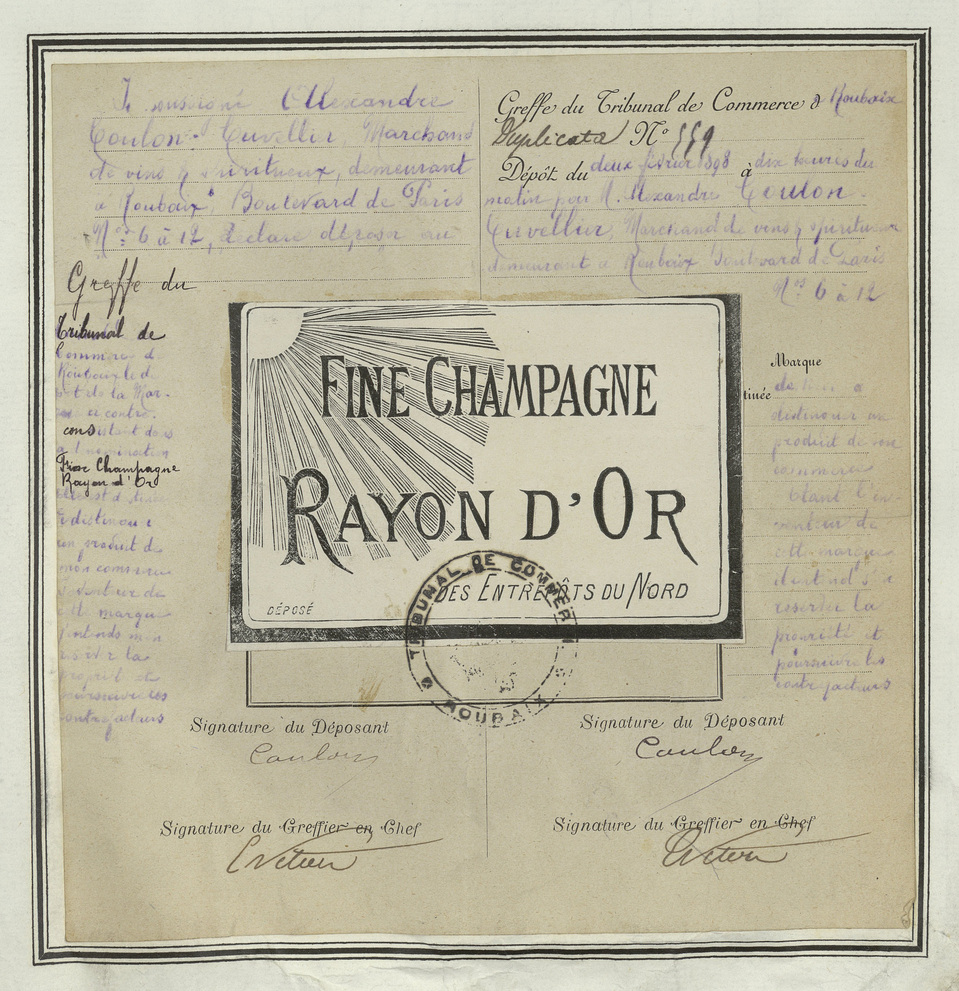 Je soussigné Alexandre
Coulon-Cuvellier, Marchand
de vins & spiritueux, demeurant
à Roubaix, Boulevard de Paris
Nos 6 à 12, déclare déposer au
Greffe du
Tribunal de
Commerce de
Roubaix le d
et de la Mar-
que ci contre.
consistait dans
la dénomination
Fine Champagne
Rayon d'Or
distinguer
un produit de
mon commerce
l'inventeur de
cette marque
j'entends m'en
réserver la
propriété et
poursuivre les
contrefacteurs
Greffe du Tribunal de Commerce d Roubaix
Duplicata No 559
Dépôt du deux février 1898 à dix heures du
matin par M. Alexandre Coulon
Cuvellier, Marchand de vins & spiritueux
demeurant à Roubaix Boulevard de Paris
Nos 6 à 12
Marque
tinée
distinguer un
produit de son
commerce
Etant l'in-
venteur de
cette marque
il entend s'en
réserver la
propriété et
poursuivre les
contrefacteurs
FINE CHAMPAGNE
RAYON D'OR
DES ENTREPÔTS DU NORD
DÉPOSÉ
TRIBUNAL DE COMMERCE
ROUBAIX
Signature du Déposant
Coulon
Signature du Greffier en Chef
Signature du Déposant
Coulon
Signature du Greffier en Chef